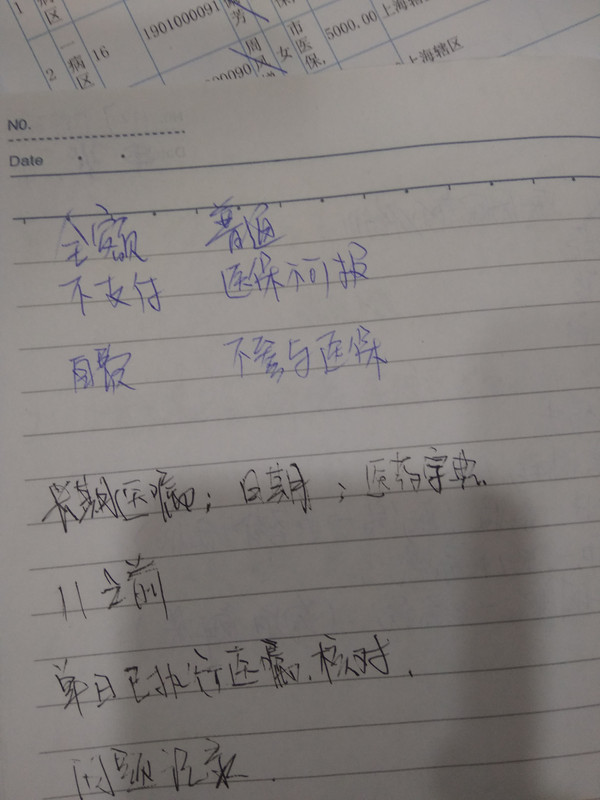 1
区
1901000091
芳
5000.00
上海辖区
2
一病区
16
00090
周风
女
市医保
上海辖区
NO.
Date
全额 普通
不支付 医保不可报
自费 不参与医保
长期医嘱; 日期; 医药字典
11之前
单日已执行医嘱.核对.
问题记录.